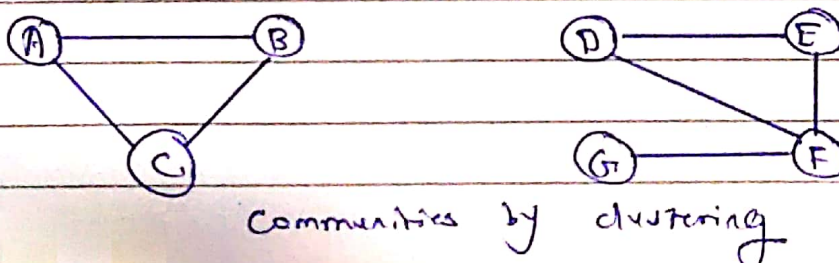 A B D E
C G F
Communities by clustering